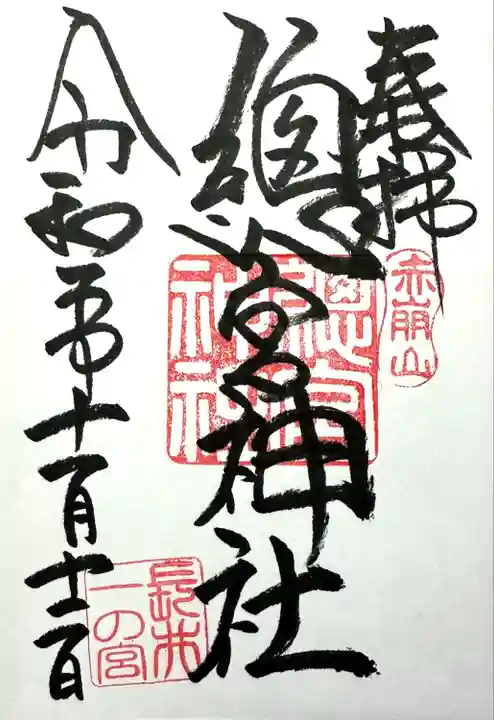 奉拝
赤崩山
總宮神社
總宮神社
令和五年十一月十二日
長井
一の宮